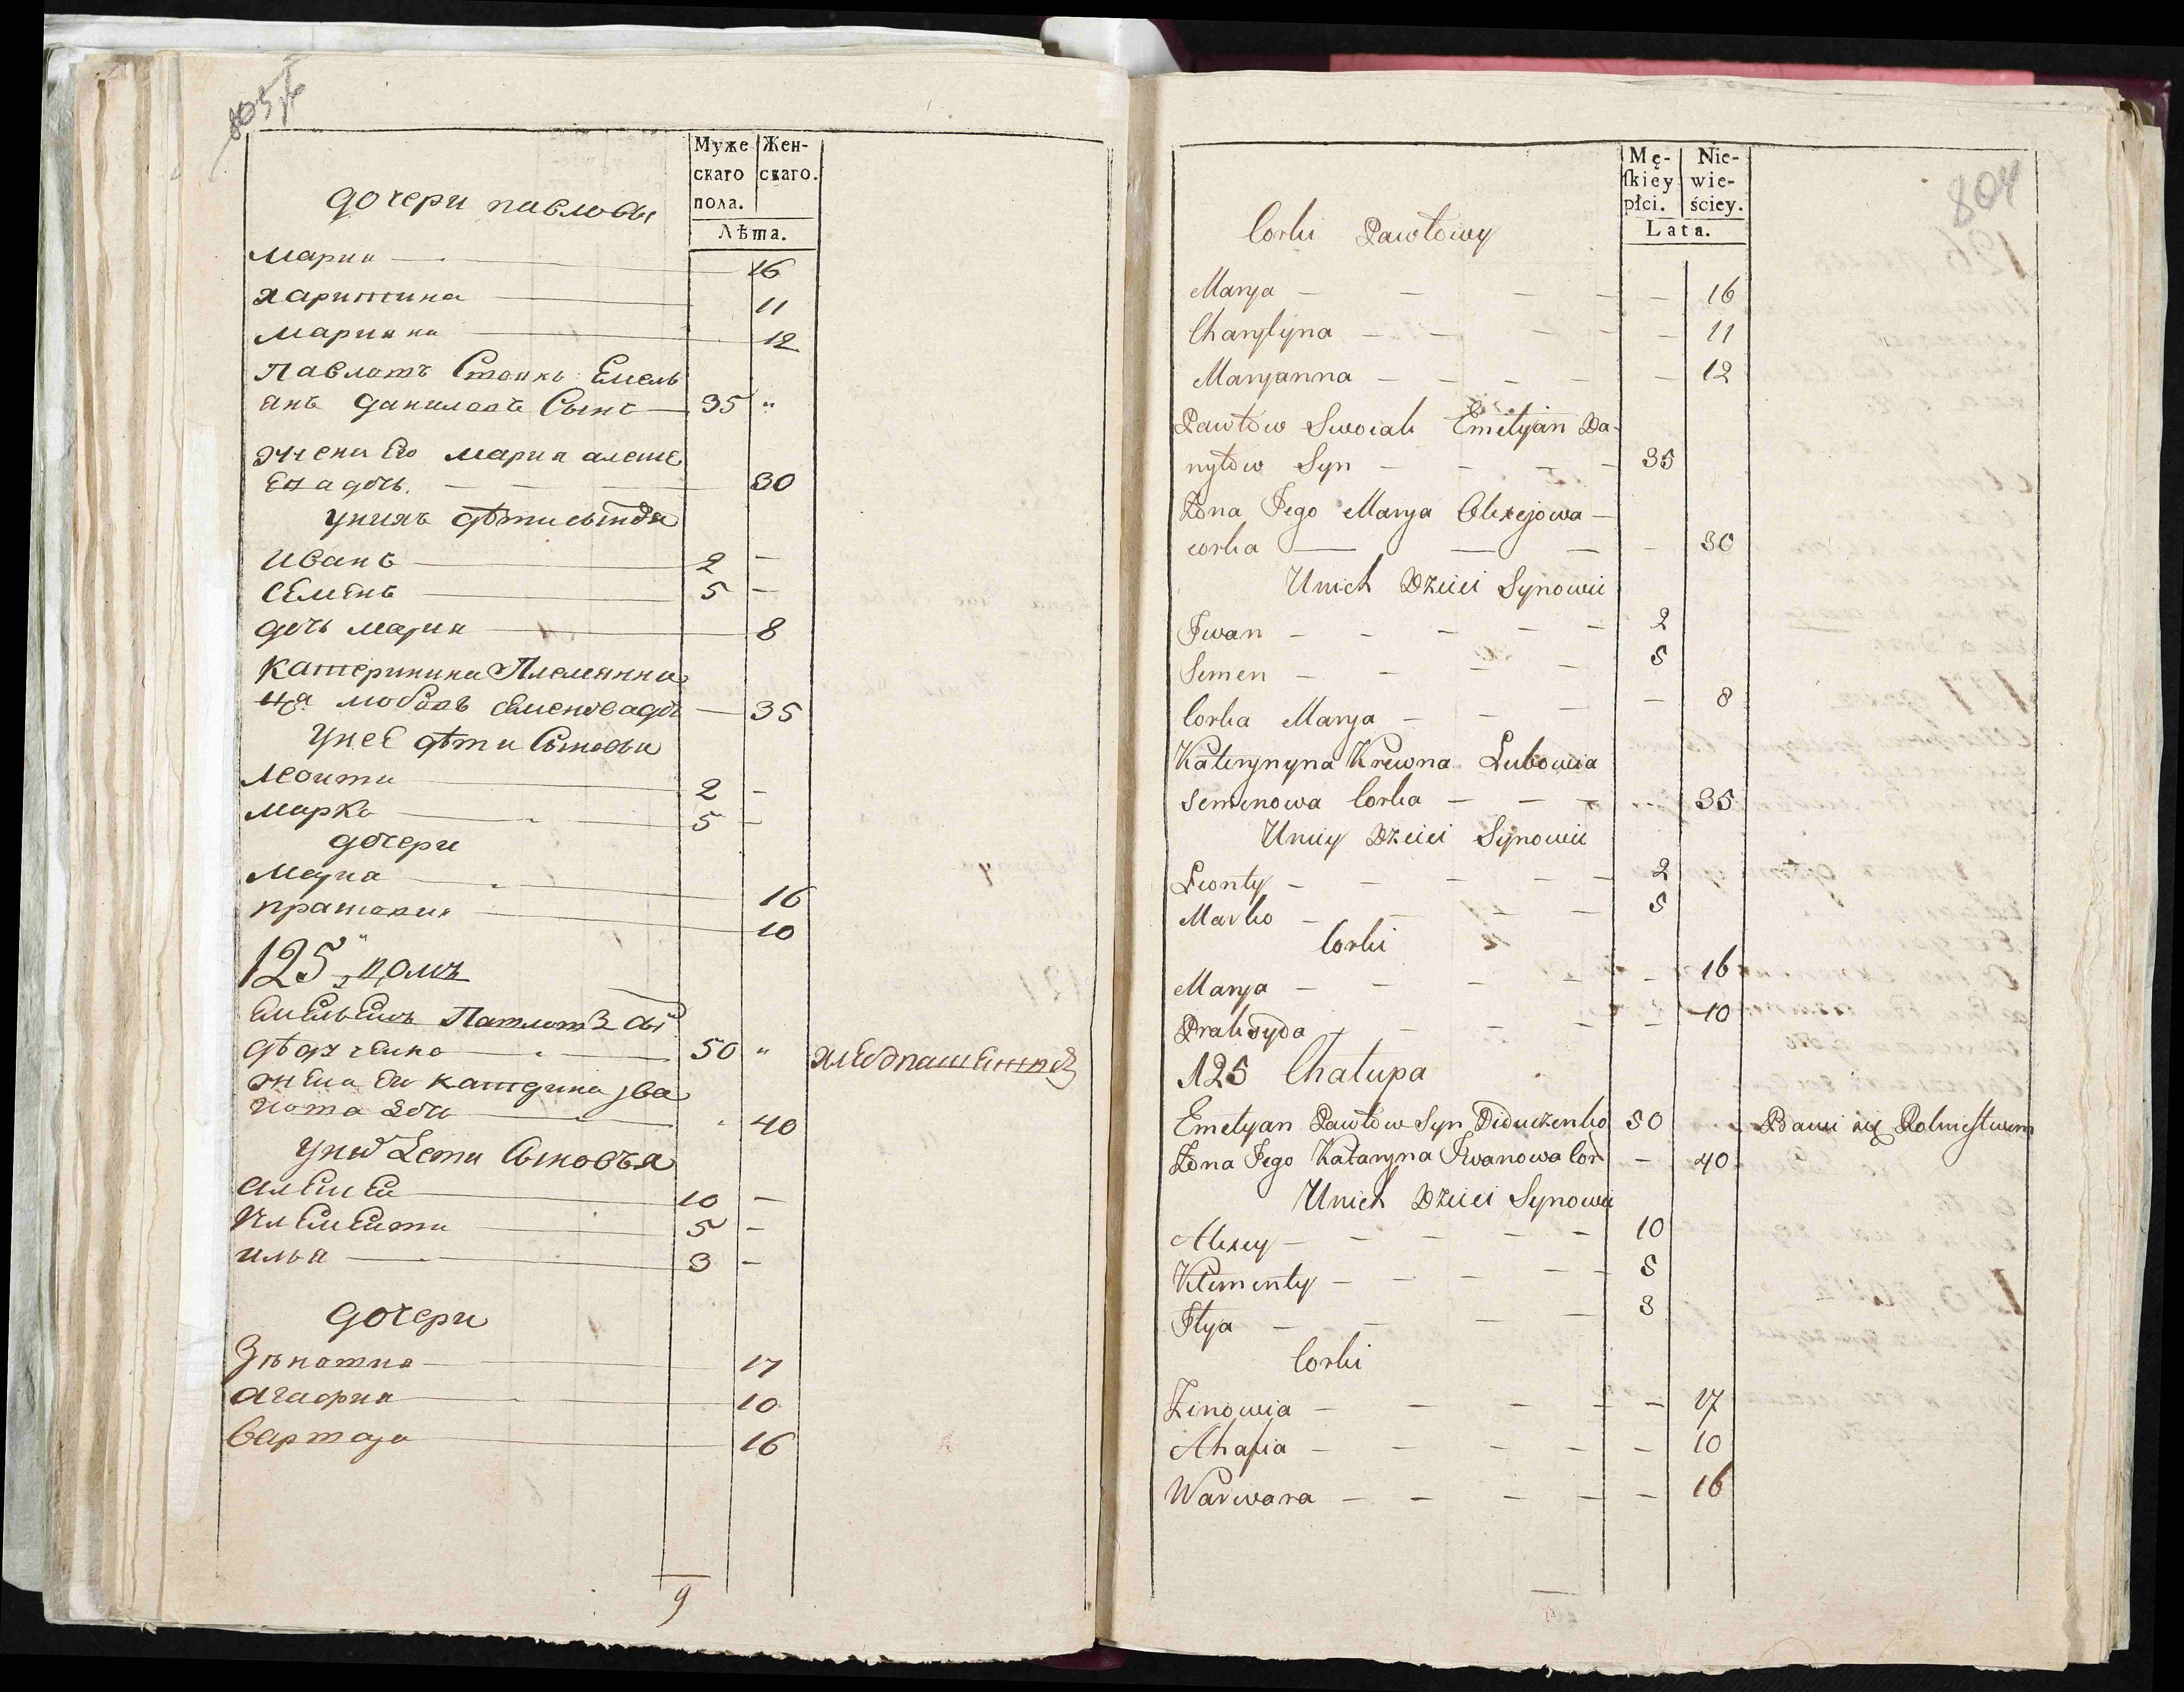 Муже Жен-
скаго скаго.
пола.
Лѣта.
дочери павловы
Мария 16
харитина 11
Мариана 12
Павловъ Своякъ Емель
янъ даниловъ Сынъ 35 "
жена Его мария алексе
Ева дочь. 30
уних дѣти
иванъ 2 —
СЕменъ 5 —
дочь мария 8
Катеринина Племянни
ца любовь семенова доч 35
Унеё дѣти Сыновьи
леонти 2 —
Марко 5 —
дочери
Мария 16
праскевия 10
125 домъ
50 " хлебопашенной
жена Ег катерина ива
нова дочь 40
уних Дети Сыновья
алексей 10 —
Клементи 5 —
илья 3 —
дочери
17
агафия 10
Варвара 16
9
804
Mę- Nie-
ſkiey wie-
płci. ściey.
Lata.
Corki Pawłowy
Marya — — — — — 16
Charytyna — — — — — 11
Maryanna — — — — — 12
Pawłow Swoiak Emelyan Da-
nyłow Syn — — — — 35
Żona Jego Marya Olexejowa —
corka — — — — 30
Unich Dzieci Synowie
Iwan — — — — — 2
Semen — — — — 5
Corka Marya — — — — 8
Katerynyna Krewna Lubowia
Semenowa Corka — — — 35
Uniey Dzieci Synowie
Leonty — — — — — 2
Marko — — — — 5
Corki
Marya — — — — — 16
Praksyda — — — — — 10
125 Chałupa
Emelyan Pawłow Syn Diduczenko 50 Bawi się Rolnictwem
Żona Jego Kataryna Iwanowa Cor — 40
Unich Dzieci Synowie
Alexey — — — — — 10
Klementy — — — — — 5
Ilya — — — — 3
Corki
Zinowia — — — — — 17
Ahafia — — — — — 10
Warwara — — — — — 16